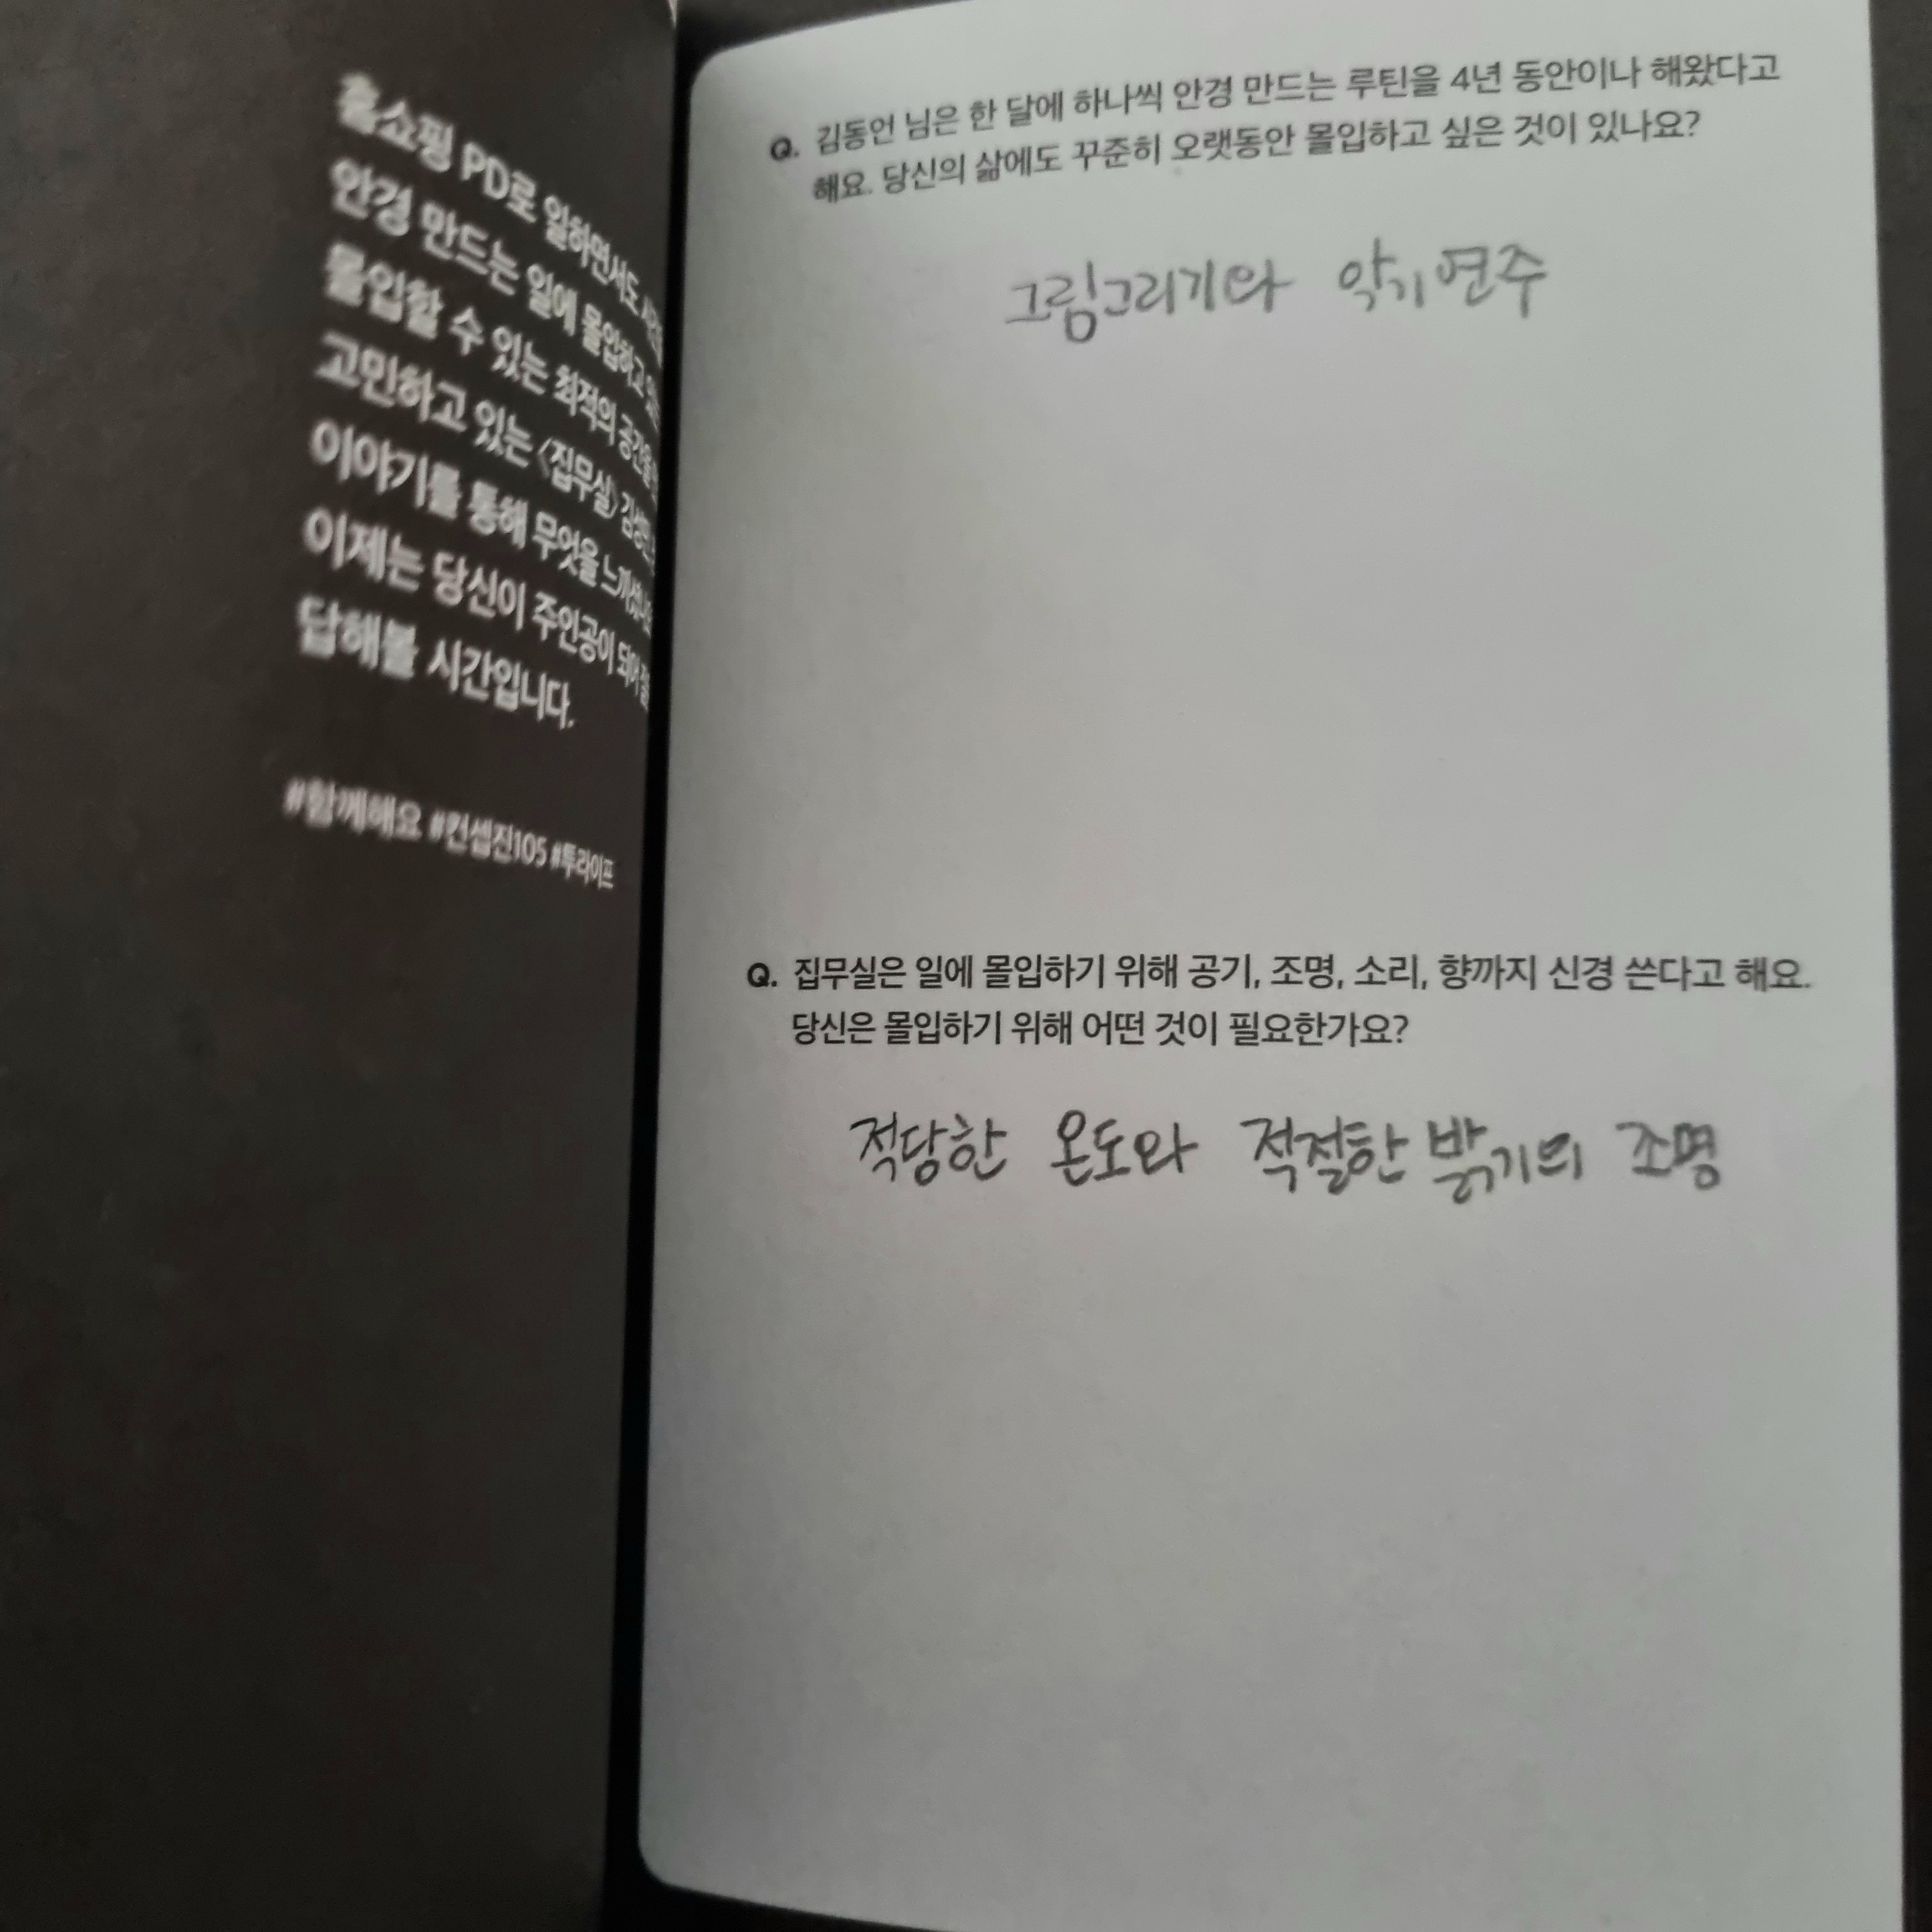 홈쇼핑 PD로 일하면서도
안경 만드는 일에 몰입하고
몰입할 수 있는 최적의 공간을
고민하고 있는 〈집무실〉
이야기를 통해 무엇을
이제는 당신이 주인공이 되어
답해볼 시간입니다.
#함께해요 #컨셉진105 #투라이프
Q. 김동언 님은 한 달에 하나씩 안경 만드는 루틴을 4년 동안이나 해왔다고
해요. 당신의 삶에도 꾸준히 오랫동안 몰입하고 싶은 것이 있나요?
그림그리기와 악기연주
Q. 집무실은 일에 몰입하기 위해 공기, 조명, 소리, 향까지 신경 쓴다고 해요.
당신은 몰입하기 위해 어떤 것이 필요한가요?
적당한 온도와 적절한 밝기의 조명